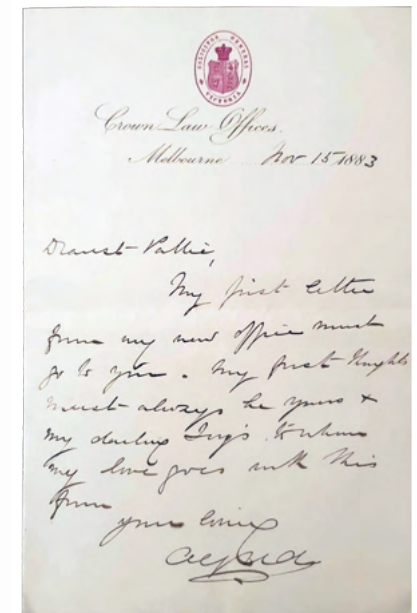 SOLICITOR GENERAL
VICTORIA
Crown Law Offices.
Melbourne Nov 15 1883
Dearest Pattie,
My first letter
from my new office must
go to you. My first thoughts
must always be yours &
my darling Ivy's. To whom
my love goes with this
from
your loving
Alfred